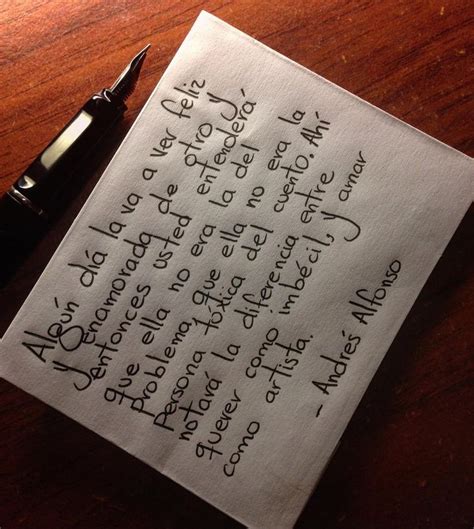 Algún díá la va a ver feliz
y enamorada de otro y
entonces usted entenderá
que ella no era la del
problema, que ella no era la
persona tóxica del cuento. Ahí
notará la diferencia entre
querer como imbécil, y amar
como artista.
- Andrés Alfonso